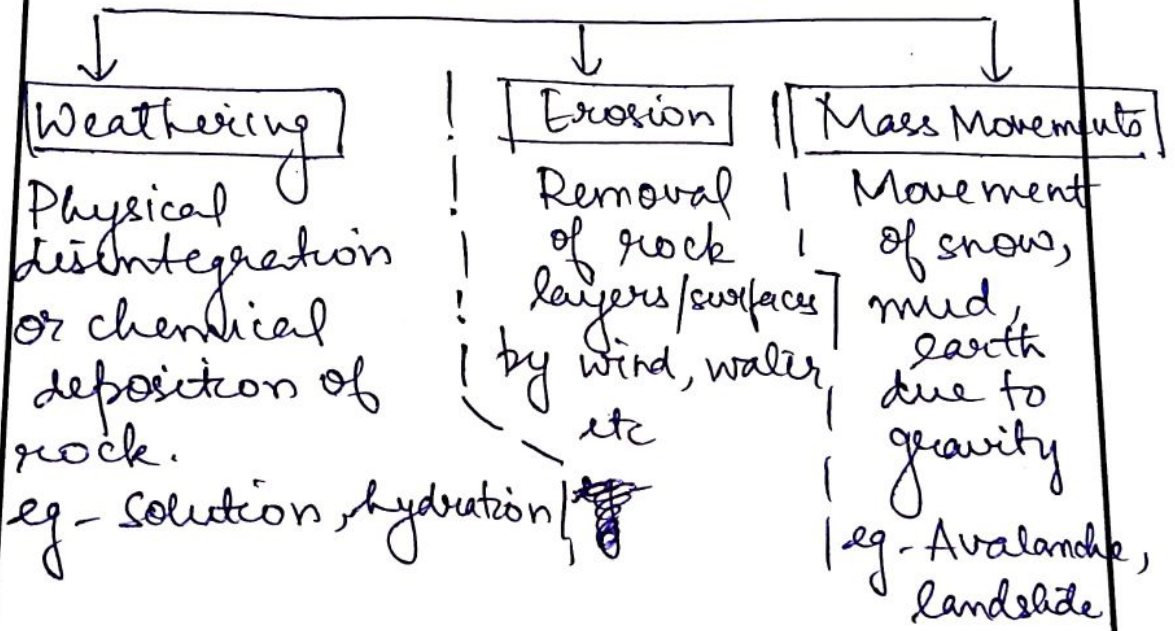 Weathering
Physical
disintegration
or chemical
deposition of
rock.
eg - Solution, hydration
Erosion
Removal
of rock
layers/surfaces
by wind, water,
etc
Mass Movements
Movement
of snow,
mud,
earth
due to
gravity
eg - Avalanche,
landslide